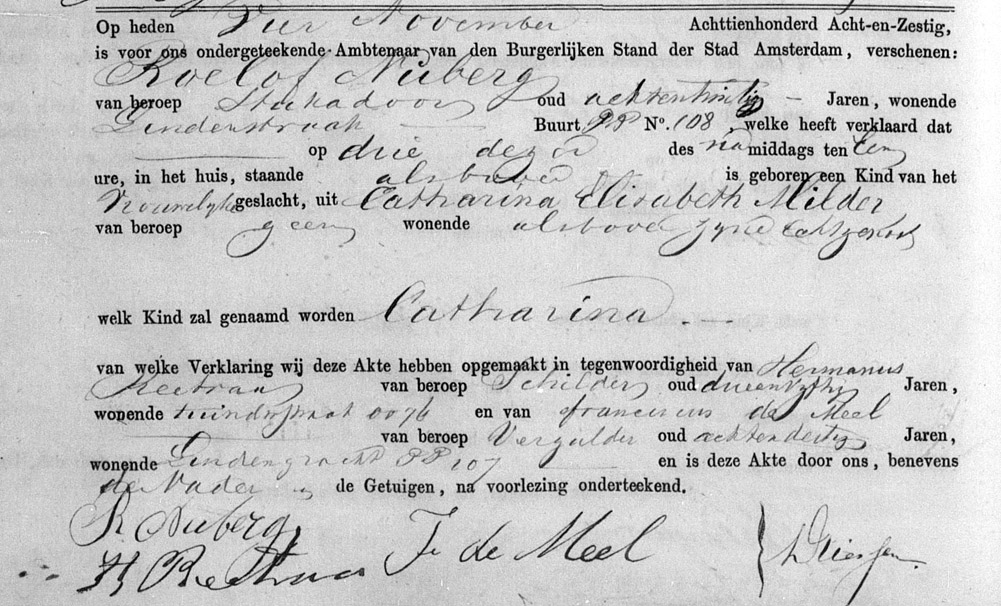 Op heden Vier November Achttienhonderd Acht-en-Zestig,
is voor ons ondergeteekende Ambtenaar van den Burgerlijken Stand der Stad Amsterdam, verschenen:
Roelof Nuberg
van beroep Stukadoor oud achtentwintig Jaren, wonende
Lindenstraat Buurt PP No. 108, welke heeft verklaard dat
op drie dezer des namiddags ten Een
ure, in het huis, staande alsboven is geboren een Kind van het
Vrouwelijk geslacht, uit Catharina Elisabeth Milder
van beroep geen wonende alsboven zijne echtgenoot
welk Kind zal genaamd worden Catharina
van welke Verklaring wij deze Akte hebben opgemaakt in tegenwoordigheid van Hermanus
van beroep Schilder oud Jaren,
wonende en van franciscus de Meel
van beroep Vergulder oud achtendertig Jaren,
wonende Lindengracht PP 107 en is deze Akte door ons, benevens
de Vader de Getuigen, na voorlezing onderteekend.
R. Nuberg
H F. de Meel